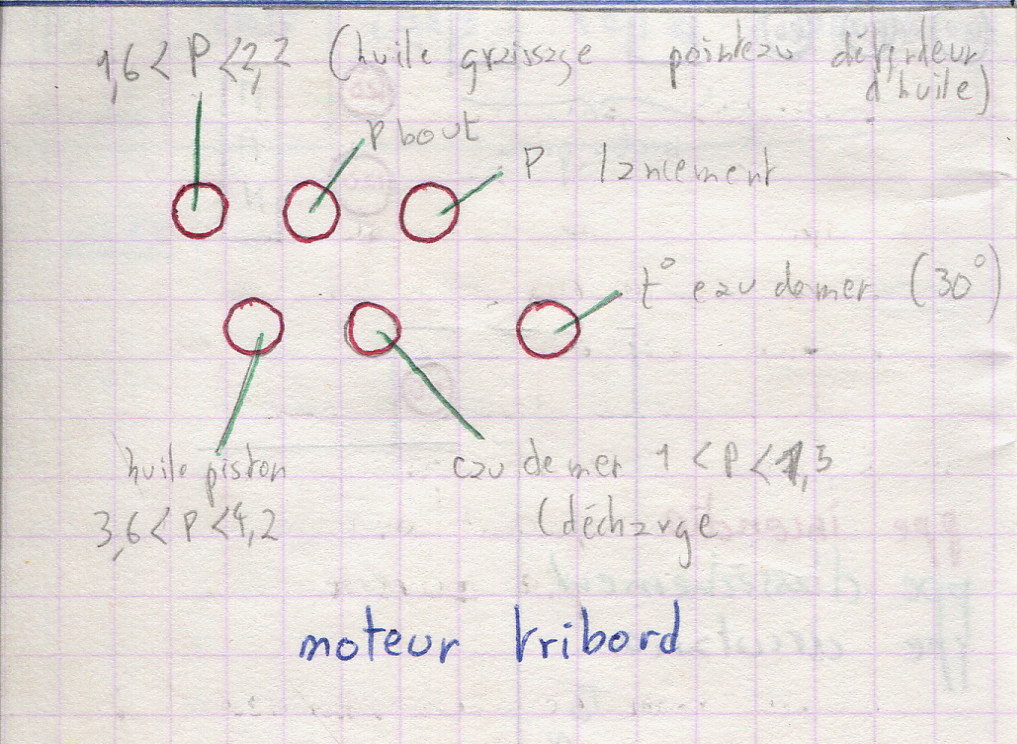 1,6 < P < 2,2 (huile graissage pointeau détendeur
d'huile)
P bout
P lancement
t° eau de mer (30°)
huile piston
eau de mer 1 < P < 1,5
3,6 < P < 4,2
(décharge
moteur tribord